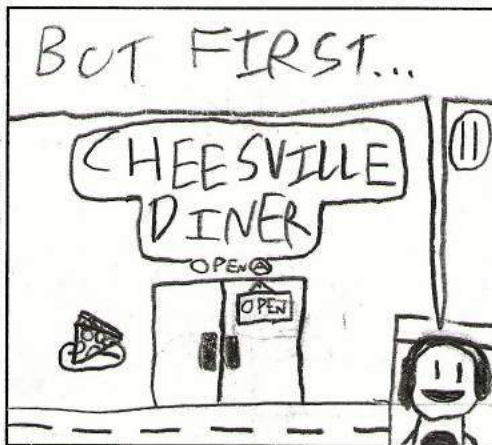 BUT FIRST...
CHEESVILLE
DINER
OPEN Ⓐ
OPEN